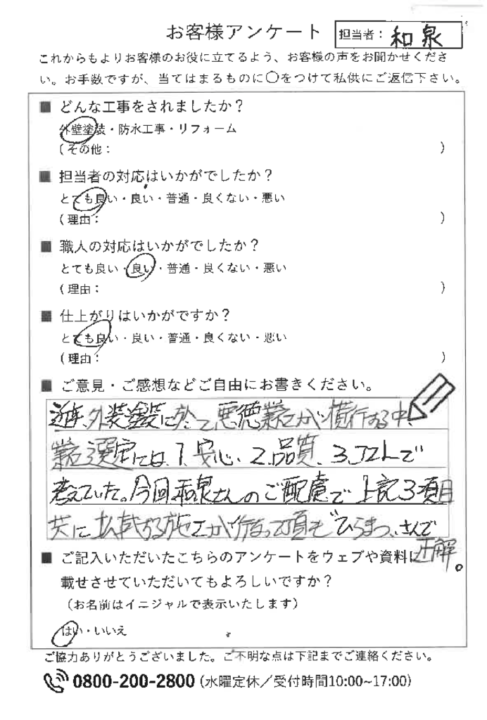 お客様アンケート 担当者: 和泉
これからもよりお客様のお役に立てるよう、お客様の声をお聞かせくださ
い。お手数ですが、当てはまるものに〇をつけて私供にご返信下さい。
■ どんな工事をされましたか?
外壁塗装・防水工事・リフォーム
(その他: )
■ 担当者の対応はいかがでしたか?
とても良い・良い・普通・良くない・悪い
(理由: )
■ 職人の対応はいかがでしたか?
とても良い・良い・普通・良くない・悪い
(理由: )
■ 仕上がりはいかがですか?
とても良い・良い・普通・良くない・悪い
(理由:
■ ご意見・ご感想などご自由にお書きください。
近年、外装塗装に於て悪徳業者が横行する中、
業者選定には、1.安心、2.品質、3.コストで
考えていた。今回和泉さんのご配慮で上記3項目
共に 施工が行なって頂き"ひらまつ"さんで
正解。
■ ご記入いただいたこちらのアンケートをウェブや資料に
載せさせていただいてもよろしいですか?
(お名前はイニシャルで表示いたします)
はい・いいえ
ご協力ありがとうございました。ご不明な点は下記までご連絡ください。
0800-200-2800 (水曜定休/受付時間10:00~17:00)